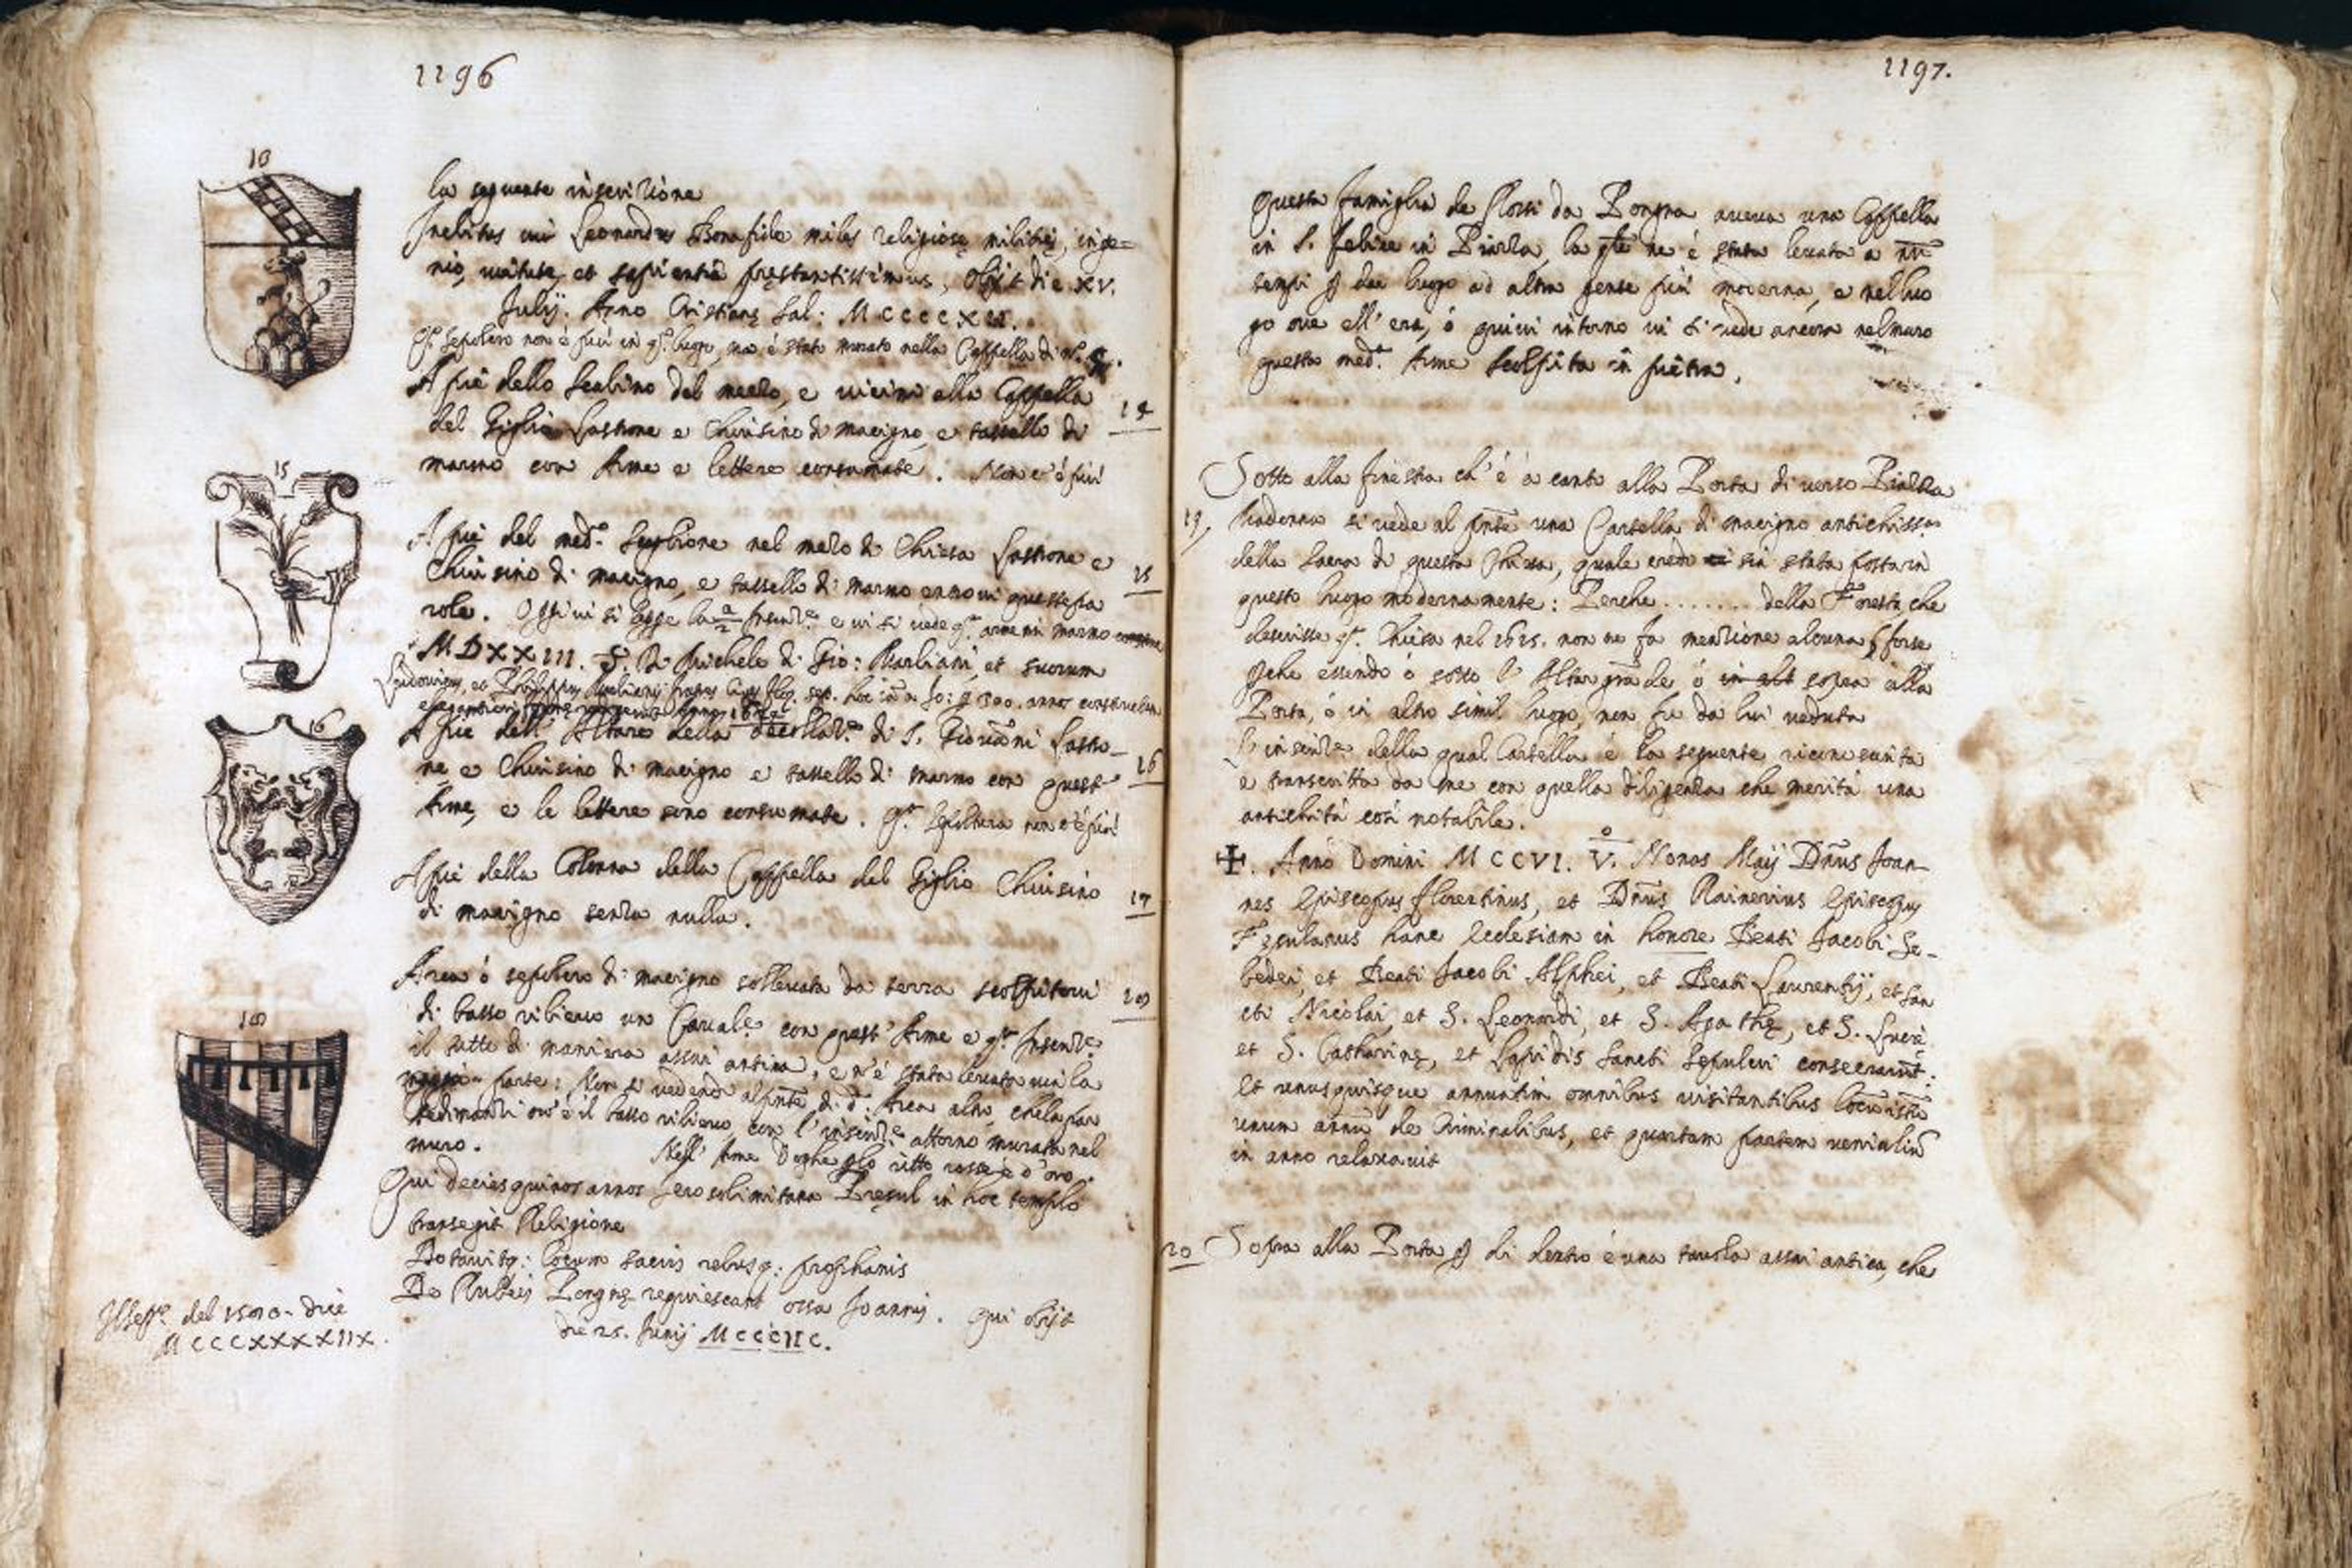 1196
13
la seguente inscrizione
Inclitus vir Leonardus Bonafide miles religiosę militię, inge=
nio, virtute, et sapientia pręstantissimus, obijt die XV.
Julij. Anno Cristianę Sal: MCCCCXII.
Qto sepolcro non è più in qto luogo, ma è stato murato nella Cappella di
A piè dello Scalino del mezzo, e vicini alla Cappella
del Giglio Lastrone e Chiusino di macigno, e tassello di
marmo con Arme e lettere consumate. Non c'è più
14
15
A piè del med.o Scaglione nel mezo di Chiesa Lastrone e
Chiusino di macigno, e tassello di marmo entrovi queste pa
role. Oggi vi si legge la 2a Inscrizne e vi si vede qta arme in marmo
15
MDXXIII. S. D. Michele di Gio: Marliani, et suorum
Ludovicus, et Philippus fratres sep. hoc Io: 300. anno
A piè dell' Altare della di S. Giovanni Lastro_
ne e Chiusino di macigno e tassello di marmo con quest'
Arme, e le lettere sono consumate. qta Sepoltura non c'è più
16
16
A piè della Colonna della Cappella del Giglio Chiusino
di macigno senza nulla.
17
Arca ò sepolcro di macigno sollevata da terra scolpitovi
di basso rilievo un Cavale con quest' Arme e qta Inscrizne
il tutto di maniera assai antica, e n'è stata levata via la
maggior parte: Non si vedendo al pnte di da Arca altro, che la par
te dinanzi ov' è il basso rilievo con l'inscrizne attorno murata nel
muro. Nell' Arme Doghe rosse e d'oro.
18
18
Qui decies quinos annos Jerosolimitana Pręsul in hoc templo
transegit Religione
Dotavitq: locum sacris rebusq: prophanis
De Rubeis Pongnę requiescant ossa Joannis. Qui obijt
die 25. Junij MCCCIIC.
Il del 1510. dice
MCCCXXXXIIX.
1197.
Questa famiglia de Rossi da Pongna aveva una Cappella
in S. Felice in Piazza, la qle ne è stata levata a nri
tempi p dar luogo ad altra gente più moderna, e nel luo
go ove ell' era, ò quivi intorno vi si vede ancora nel muro
questa meda. Arme scolpita in pietra.
Sotto alla finestra ch' è à canto alla Porta di verso Piazza
19,
Madonna si vede al pnte una Cartella di macigno antichissa.
della Sacra di questa Chiesa, quale credo sia stata posta in
questo luogo modernamente: Perche ........ della Foresta che
descrisse qta Chiesa nel 1625. non ne fa menzione alcuna, forse
pche essendo ò sotto l' Altar grande ò in alt sopra alla
Porta, ò in altro simil luogo, non fu da lui veduta
L'inscrizne della qual Cartella è la seguente riconosciuta
e transcritta da me con quella diligenza che merita una
antichità così notabile.
✠. Anno Domini MCCVI. V.o Nonas Maij Dnus Joan_
nes Episcopus Florentinus, et Dnus Rainerius Episcopus
Fęsulanus hanc Ecclesiam in honore Beati Jacobi Ze_
bedei, et Beati Jacobi Alphei, et Beati Laurentij, et San
cti Nicolai, et S. Leonardi, et S. Agathę, et S. Lucię
et S. Catharinę, et Lapidis Sancti Sepulcri consecrarunt.
Et unusquisque annuatim omnibus visitantibus locum istum
unum annu de Criminalibus, et quartam partem venialiu
in anno relaxavit
20
Sopra alla Porta p di dentro è una tavola assai antica, che